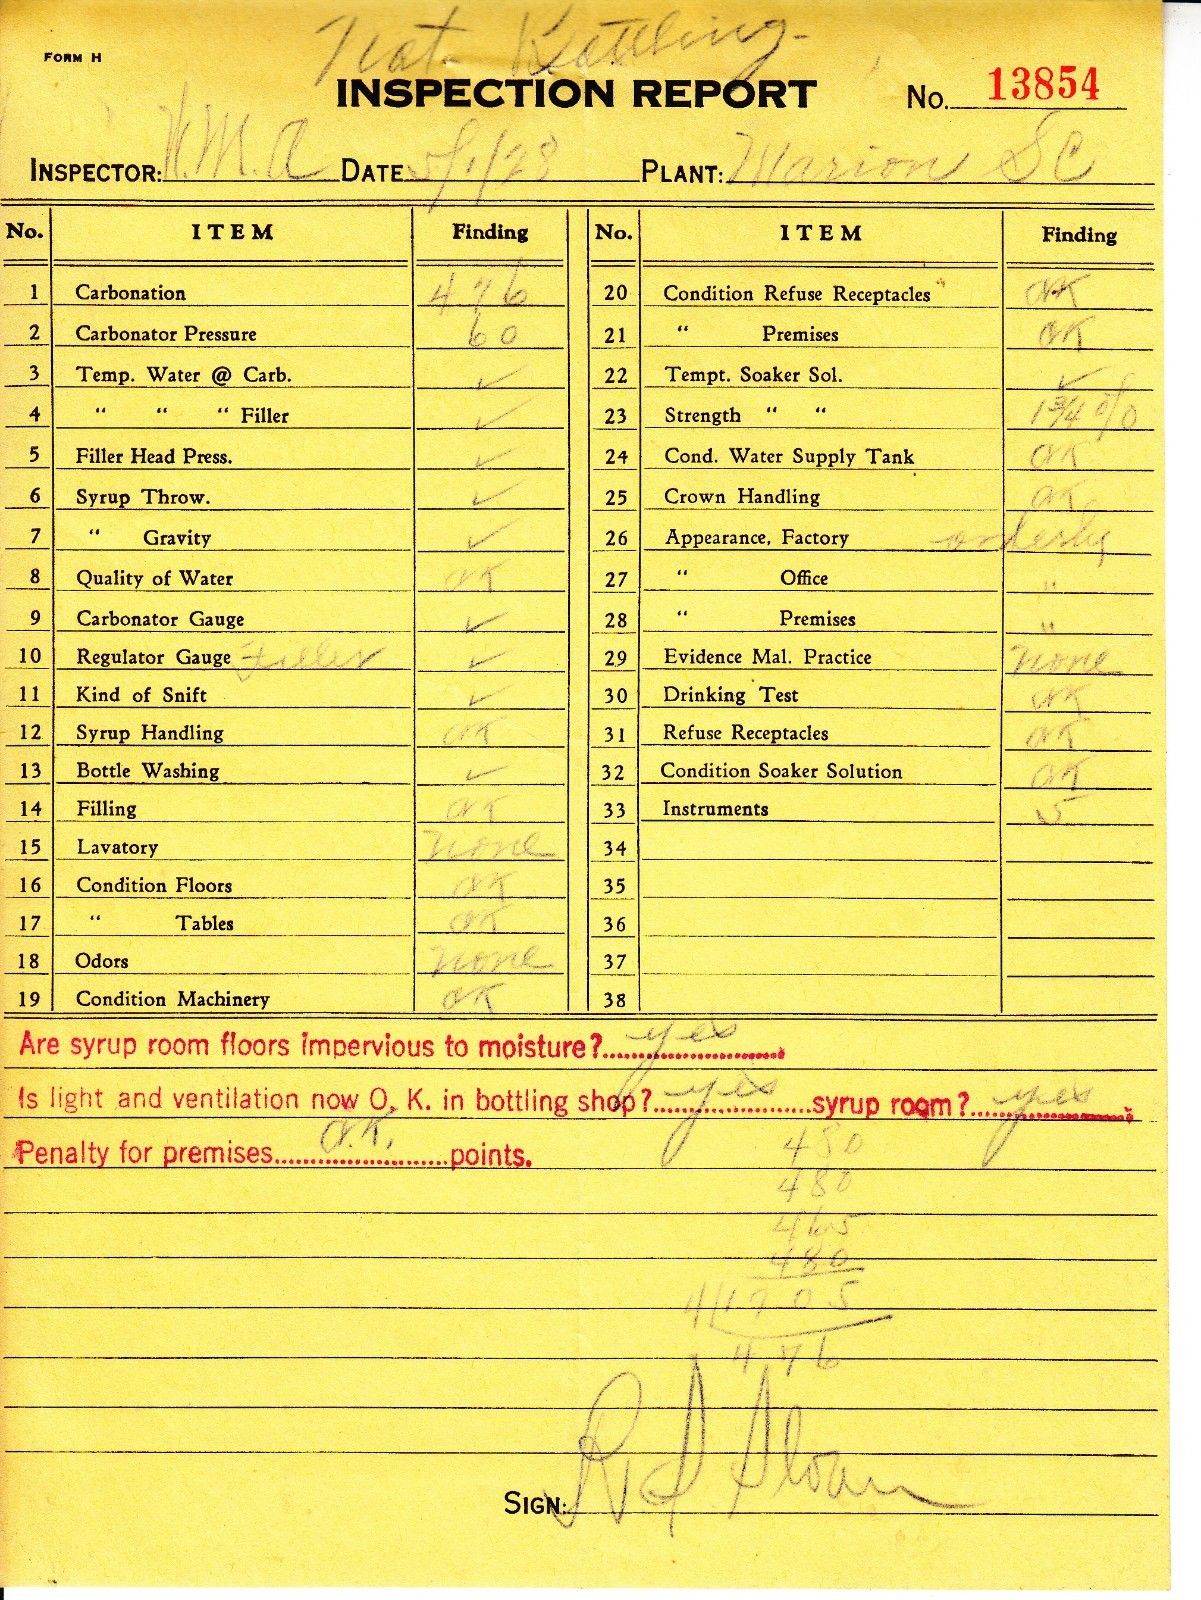 FORM H
INSPECTION REPORT No. 13854
INSPECTOR: DATE 5/1/28 PLANT: Marion SC
No. ITEM Finding
1 Carbonation 476
2 Carbonator Pressure 60
3 Temp. Water @ Carb. ✓
4 “ “ “ Filler ✓
5 Filler Head Press. ✓
6 Syrup Throw. ✓
7 “ Gravity ✓
8 Quality of Water OK
9 Carbonator Gauge ✓
10 Regulator Gauge Filler ✓
11 Kind of Snift ✓
12 Syrup Handling OK
13 Bottle Washing ✓
14 Filling OK
15 Lavatory none
16 Condition Floors OK
17 “ Tables OK
18 Odors none
19 Condition Machinery OK
No. ITEM Finding
20 Condition Refuse Receptacles OK
21 “ Premises OK
22 Tempt. Soaker Sol. ✓
23 Strength “ “ 1 3/4 %
24 Cond. Water Supply Tank OK
25 Crown Handling OK
26 Appearance, Factory orderly
27 “ Office "
28 “ Premises "
29 Evidence Mal. Practice none
30 Drinking Test OK
31 Refuse Receptacles OK
32 Condition Soaker Solution OK
33 Instruments 5
34
35
36
37
38
Are syrup room floors impervious to moisture? yes
Is light and ventilation now O. K. in bottling shop? yes syrup room? yes
Penalty for premises O.K. points.
480
480
465
480
4 1905
476
SIGN: Sloan